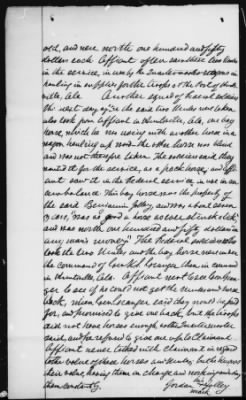 old, and were worth one hundred and fifty
dollars each Affiant often saw these two Mules
in the service, in use by the Quartermasters
hauling in supplies for the troops at the Post of Hunts-
ville, Ala. Another squad of Federal soldiers
the next day after the said two Mules were taken
also took from Affiant in Huntsville, Ala, one bay
horse, which he was using with another horse in a
wagon, hauling up wood - the other horse was blind
and was not therefore taken. The soldiers said, they
wanted it for the service, as a pack horse, and aff-
iant saw it in the Federal service, in use in an
ambulance. This bay horse, was the property of
the said Benjamin Jolley, and was about seven
years, was as good a horse as ever struck
and was worth one hundred and fifty dollars in
any man's money." The Federal soldiers who
took the two Mules and the bay horse were under
the command of General Granger, then in command
in Huntsville Ala. Affiant went to see Gen Gran-
ger to see if he could not get the mules and horse
back, when Genl Granger said they would
for, and promised to give one back, but the troops
did not have horses enough
said, and he refused to give one up to Claimant
Affiant never talked with Claimant in regard
to the value of these horses and mules, but he knows
their value, having them in charge and working with
them constantly.
Jordan his Jolley
mark